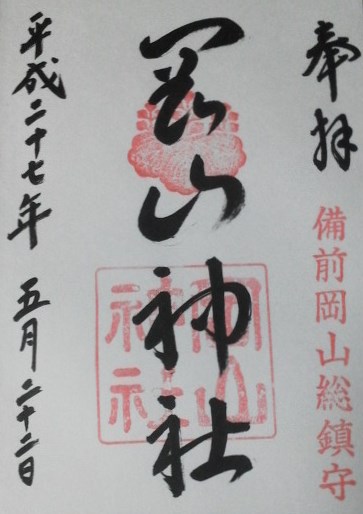 奉拝
備前岡山総鎮守
岡山神社
岡山
神社
平成二十七年 五月二十二日